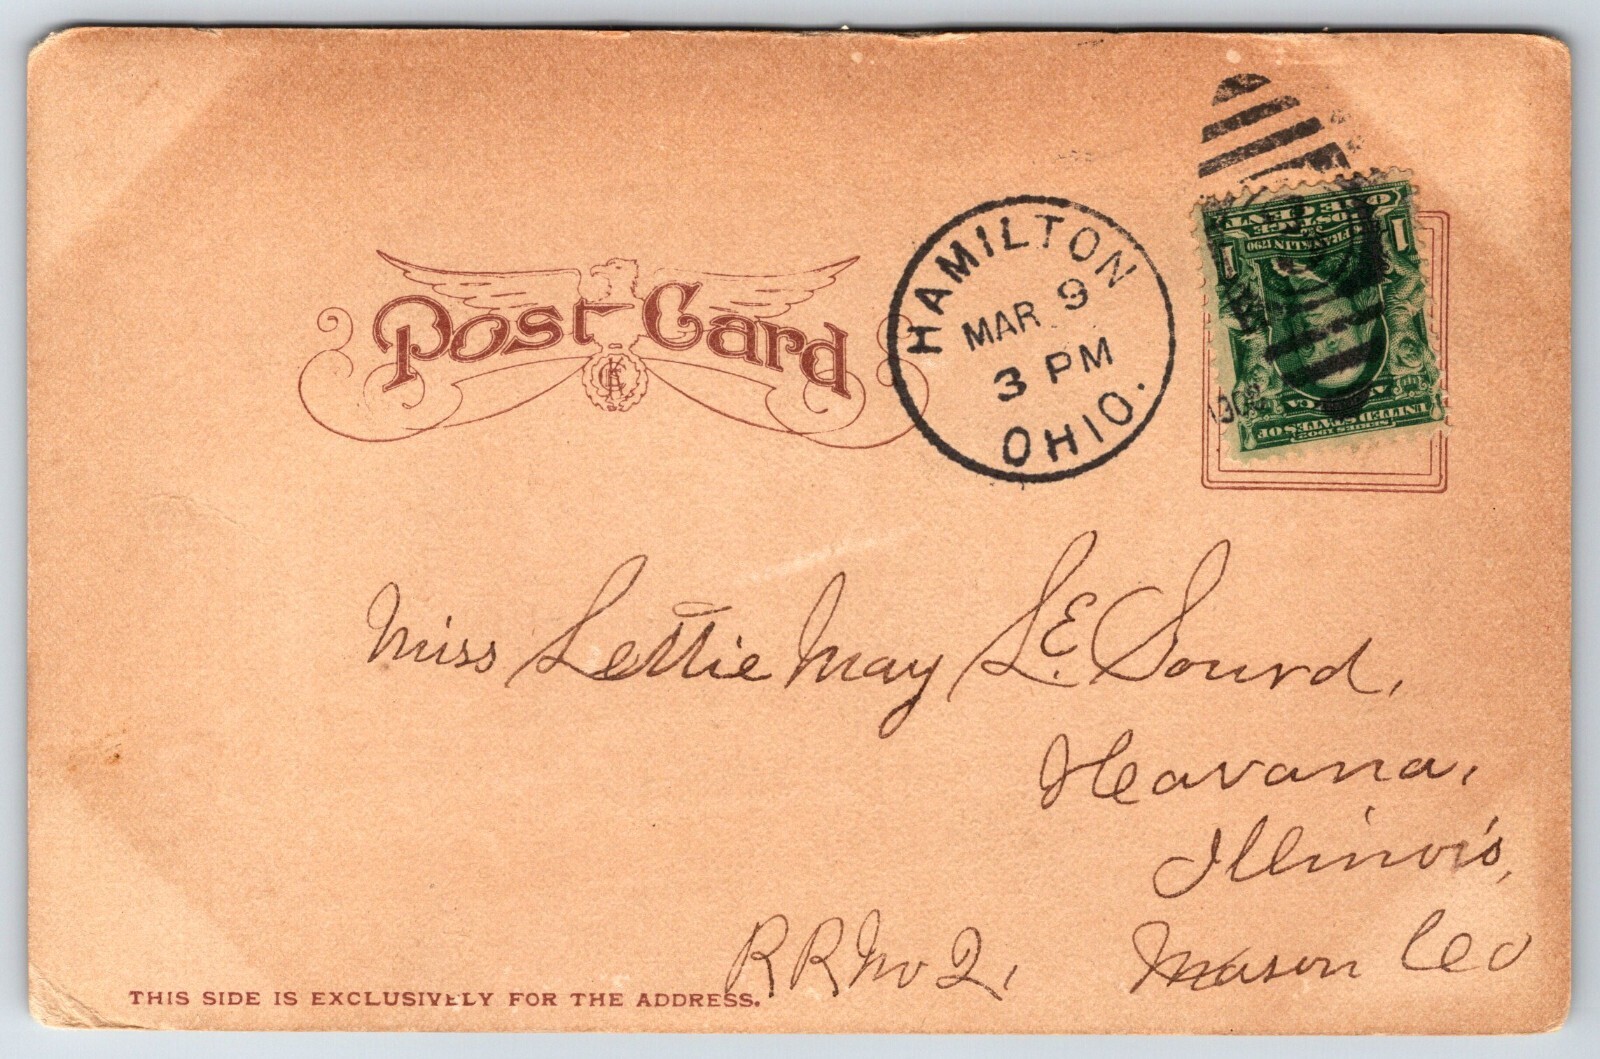 Post Card
HAMILTON
MAR 9
3 PM
OHIO.
ONE CENT
POSTAGE
FRANKLIN 1790
1 1
SERIES 1902
UNITED STATES OF
AMERICA
Miss Lettie May LE. Sourd,
Havana,
Illinois,
RR No 2, Mason Co
THIS SIDE IS EXCLUSIVELY FOR THE ADDRESS.